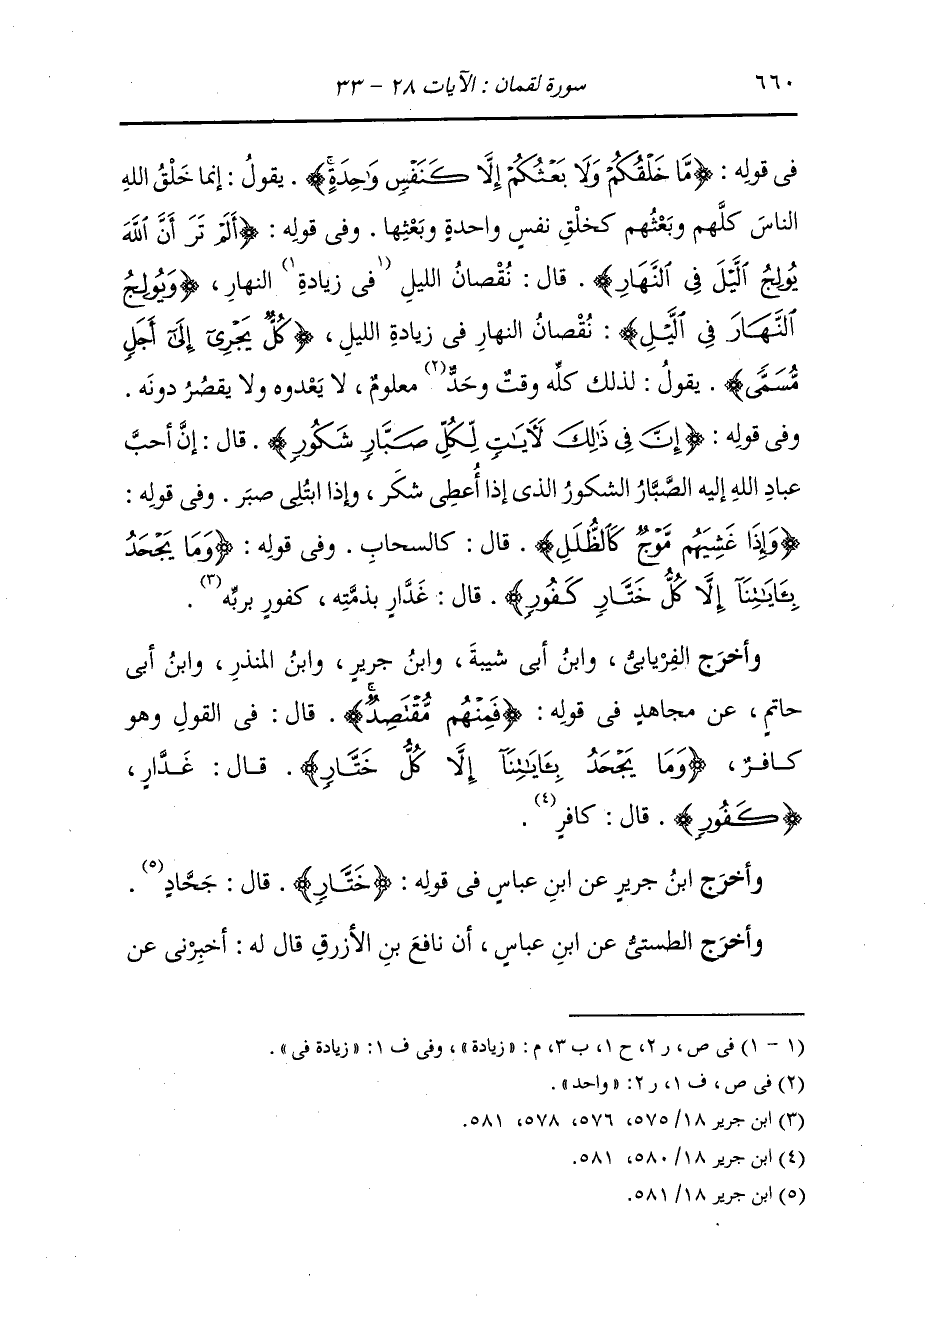 ٦٦٠ سورة لقمان : الآيات ٢٨ - ٣٣
فى قولِه : ﴿مَّا خَلْقُكُمْ وَلَا بَعْثُكُمْ إِلَّا كَنَفْسٍ وَٰحِدَةٍۚ﴾ . يقولُ : إنما خَلْقُ اللهِ
الناسَ كلَّهم وبَعْثُهم كخلْقِ نفسٍ واحدةٍ وبَعْثِها . وفى قولِه : ﴿أَلَمْ تَرَ أَنَّ ٱللَّهَ
يُولِجُ ٱلَّيْلَ فِى ٱلنَّهَارِ﴾ . قال : نُقْصانُ الليلِ (١فى زيادةِ١) النهارِ ، ﴿وَيُولِجُ
ٱلنَّهَارَ فِى ٱلَّيْلِ﴾ : نُقْصانُ النهارِ فى زيادةِ الليلِ ، ﴿كُلٌّ يَجْرِىٓ إِلَىٰٓ أَجَلٍ
مُّسَمًّى﴾ . يقولُ : لذلك كلِّه وقتٌ وحَدٌّ(٢) معلومٌ ، لا يَعْدوه ولا يقصُرُ دونَه .
وفى قولِه : ﴿إِنَّ فِى ذَٰلِكَ لَأَيَٰتٍ لِّكُلِّ صَبَّارٍ شَكُورٍ﴾ . قال : إنَّ أحبَّ
عبادِ اللهِ إليه الصَّبَّارُ الشكورُ الذى إذا أُعطِى شكَر ، وإذا ابتُلِى صبَر . وفى قولِه :
﴿وَإِذَا غَشِيَهُم مَّوْجٌ كَٱلظُّلَلِ﴾ . قال : كالسحابِ . وفى قولِه : ﴿وَمَا يَجْحَدُ
بِـَٔايَٰتِنَآ إِلَّا كُلُّ خَتَّارٍ كَفُورٍ﴾ . قال : غَدَّارٍ بذمَّتِه ، كفورٍ بربِّه(٣) .
وأخرَج الفِرْيابىُّ ، وابنُ أبى شيبةَ ، وابنُ جريرٍ ، وابنُ المنذرِ ، وابنُ أبى
حاتمٍ ، عن مجاهدٍ فى قولِه : ﴿فَمِنْهُم مُّقْتَصِدٌۚ﴾ . قال : فى القولِ وهو
كافرٌ ، ﴿وَمَا يَجْحَدُ بِـَٔايَٰتِنَآ إِلَّا كُلُّ خَتَّارٍ﴾ . قال : غَدَّارٍ ،
﴿كَفُورٍ﴾ . قال : كافرٍ(٤) .
وأخرَج ابنُ جريرٍ عن ابنِ عباسٍ فى قولِه : ﴿خَتَّارٍ﴾ . قال : جَحَّادٍ(٥) .
وأخرَج الطستىُّ عن ابنِ عباسٍ ، أن نافعَ بنَ الأزرقِ قال له : أخبِرْنى عن
(١ - ١) فى ص ، ر ٢، ح ١، ب ٣، م : «زيادة» ، وفى ف ١: «زيادة فى» .
(٢) فى ص ، ف ١، ر ٢: «واحد» .
(٣) ابن جرير ١٨/ ٥٧٥، ٥٧٦، ٥٧٨، ٥٨١.
(٤) ابن جرير ١٨/ ٥٨٠، ٥٨١.
(٥) ابن جرير ١٨/ ٥٨١.